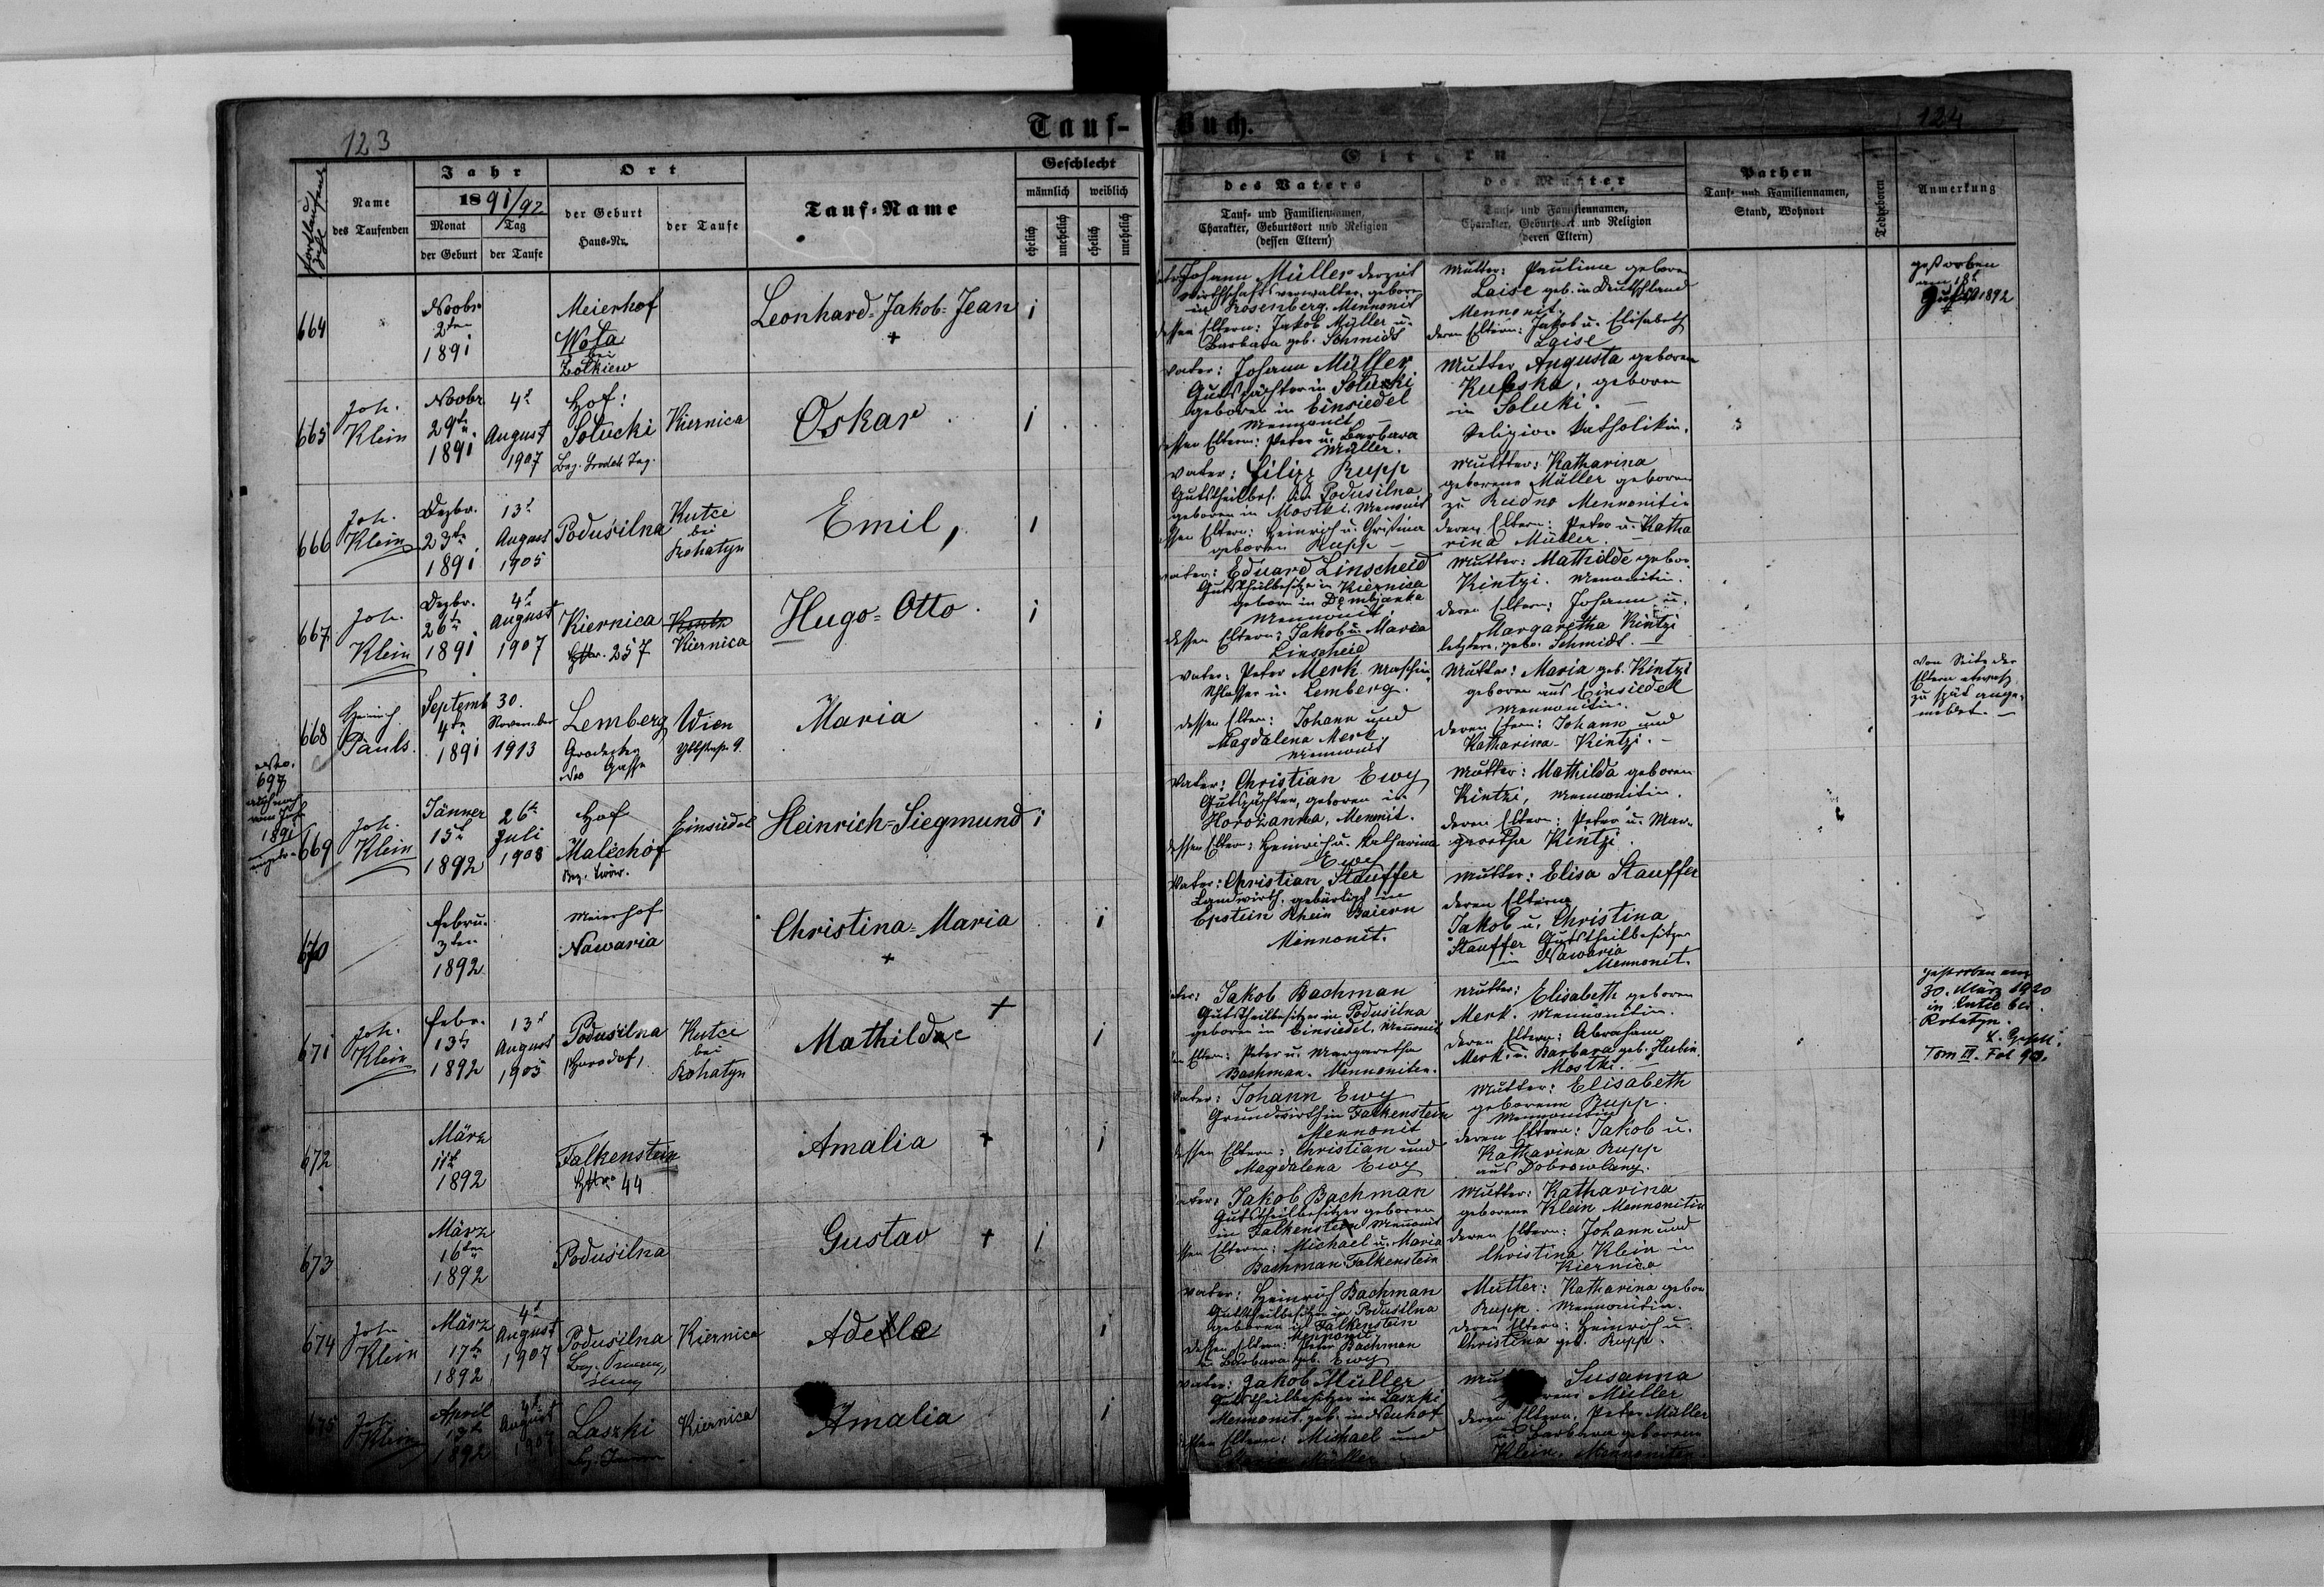 123
Tauf-
Fortlaufende Zahl
Name
des Taufenden
Jahr
1891/92
Monat
Tag
der Geburt
der Taufe
Ort
der Geburt
Haus-Nr.
der Taufe
Tauf-Name
Geschlecht
männlich
weiblich
ehelich
unehelich
ehelich
unehelich
664
Novbr.
2ten
1891
Meierhof
Wola
bei
Zolkiew
Leonhard-Jakob-Jean
+
665
Joh.
Klein
Novbr
29tn
1891
4t
August
1907
Hof:
Solucki
Kiernica
Oskar
666
Joh.
Klein
Dezbr.
23tn
1891
13t
August
1905
Podusilna
Kutce
bei
Rohatyn
Emil,
667
Joh.
Klein
Dezbr.
26tn
1891
4t
August
1907
Kiernica
257
Kiernica
Hugo-Otto
668
Heinrich
Pauls.
Septemb
4tn
1891
30.
November
1913
Lemberg
Grodecka
Gasse
Wien
Maria
No.
697
1891
669
Joh.
Klein
Jänner
15t
1892
26tn
Juli
1908
Hof
Malechof
Einsiedel
Heinrich-Siegmund
670
Febru.
3ten
1892
Meierhof
Nawaria
Christina-Maria
+
671
Joh.
Klein
Febr.
13tn
1892
13t
August
1905
Podusilna
Kutce
bei
Rohatyn
Mathilde
+
672
März
11tn
1892
Falkenstein
44
Amalia
+
673
März
16ten
1892
Podusilna
Gustav
+
674
Joh
Klein
März
17tn
1892
4t
August
1907
Podusilna
Kiernica
Adele
675
Joh.
Klein
April
1892
4t
August
1907
Laszki
Kiernica
Amalia
Buch.
124
Eltern
des Vaters
Tauf- und Familiennamen,
Charakter, Geburtsort und Religion
(dessen Eltern)
der Mutter
Tauf- und Familiennamen,
Charakter, Geburtsort und Religion
(deren Eltern)
Pathen
Tauf- und Familiennamen,
Stand, Wohnort
Todtgeboren
Anmerkung
Johann Müller derzeit
Wirthschaftsverwalter, geboren
in Rosenberg, Mennonit
dessen Eltern: Jakob Müller u.
Barbara geb. Schmidt
Mutter: Pauline geboren
Laise geb. in Deutschland
Mennonit.
deren Eltern: Jakob u. Elisabeth
Laise
gestorben
am 18t
1892
Vater: Johann Müller
Gutspächter in Solucki
geboren in Einsiedel
Mennonit
dessen Eltern: Peter u. Barbara
Müller.
Mutter Augusta geboren
geboren
in Soluki.
Religion Katholikin.
Vater: Filipp Rupp
Gutstheilbes. in Podusilna
geboren in Mostki. Mennonit
dessen Eltern: Heinrich u. Christina
geboren Rupp
Mutter: Katharina
geborene Müller geboren
zu Rudno Mennonitin
deren Eltern: Peter u. Katha
rina Müller.
Vater: Eduard Linscheid
Gutstheilbesitzer in Kiernica
geboren in Dembjanka
Mennonit
dessen Eltern: Jakob u. Maria
Linscheid
Mutter: Mathilde gebor.
Kintzi. Mennonitin.
deren Eltern: Johann u.
Margaretha Kintzi
letztere gebr. Schmidt.
Vater: Peter Merk Maschin.
Schlosser in Lemberg.
dessen Eltern: Johann und
Magdalena Merk.
Mennonit
Mutter: Maria geb. Kintzi
geboren aus Einsiedel
Mennonitin.
deren Eltern: Johann und
Katharina Kintzi.
von Seite der
Eltern etwas
zu spät ange-
meldet.
Vater: Christian Ewy
Gutspächter, geboren in
Horozanna, Mennit.
dessen Elter: Heinrich u. Katharina
Ewy
Mutter: Mathilda geboren
Kintzi, Mennonitin.
deren Eltern: Peter u. Mar-
garetha Kintzi.
Vater: Christian Stauffer
Landwirth, gebürtig in
Epstein Rhein Baiern
Mennonit.
Mutter: Elisa Stauffer
deren Eltern
Jakob u. Christina
Stauffer Gutstheilbesitzer
in Nawaria
Mennonit.
Jakob Bachman
Gutstheilbesitzer in Podusilna
geboren in Einsiedel, Mennonit
Eltern: Peter u. Margaretha
Bachman. Mennoniten.
Mutter: Elisabeth geboren
Merk. Mennonitin.
deren Eltern: Abraham
Merk u. Barbara geb. Hubin
Mostki.
gestorben am
30. März 1920
in Kutce bei
Rohatyn.
Tom III. Fol 93.
Vater: Johann Ewy
Grundwirth in Falkenstein
Mennonit
dessen Eltern: Christian und
Magdalena Ewy
Mutter: Elisabeth
geborene Rupp.
Mennonitin
deren Eltern: Jakob u.
Katharina Rupp
aus Dobrowlany.
Vater: Jakob Bachman
Gutstheilbesitzer geboren
in Falkenstein Mennonit
dessen Elteren: Michael u. Maria
Bachman Falkenstein
Mutter: Katharina
geborene Klein Mennonitin
deren Eltern: Johann und
Christina Klein in
Kiernica
Vater: Heinrich Bachman
Gutstheilbesitzer in Podusilna
geboren in Falkenstein
Mennonit
dessen Eltern: Peter Bachman
u. Barbara geb. Ewy
Mutter: Katharina gebor
Rupp. Mennonitin.
deren Eltern: Heinrich u.
Christina geb. Rupp.
Vater: Jakob Müller
Gutstheilbesitzer in Laszki
Mennonit. geb. in Neuhof
dessen Eltern: Michael und
Maria Müller
Susanna
Müller
deren Eltern. Peter Müller
u. Barbara geborene
Klein. Mennoniten.